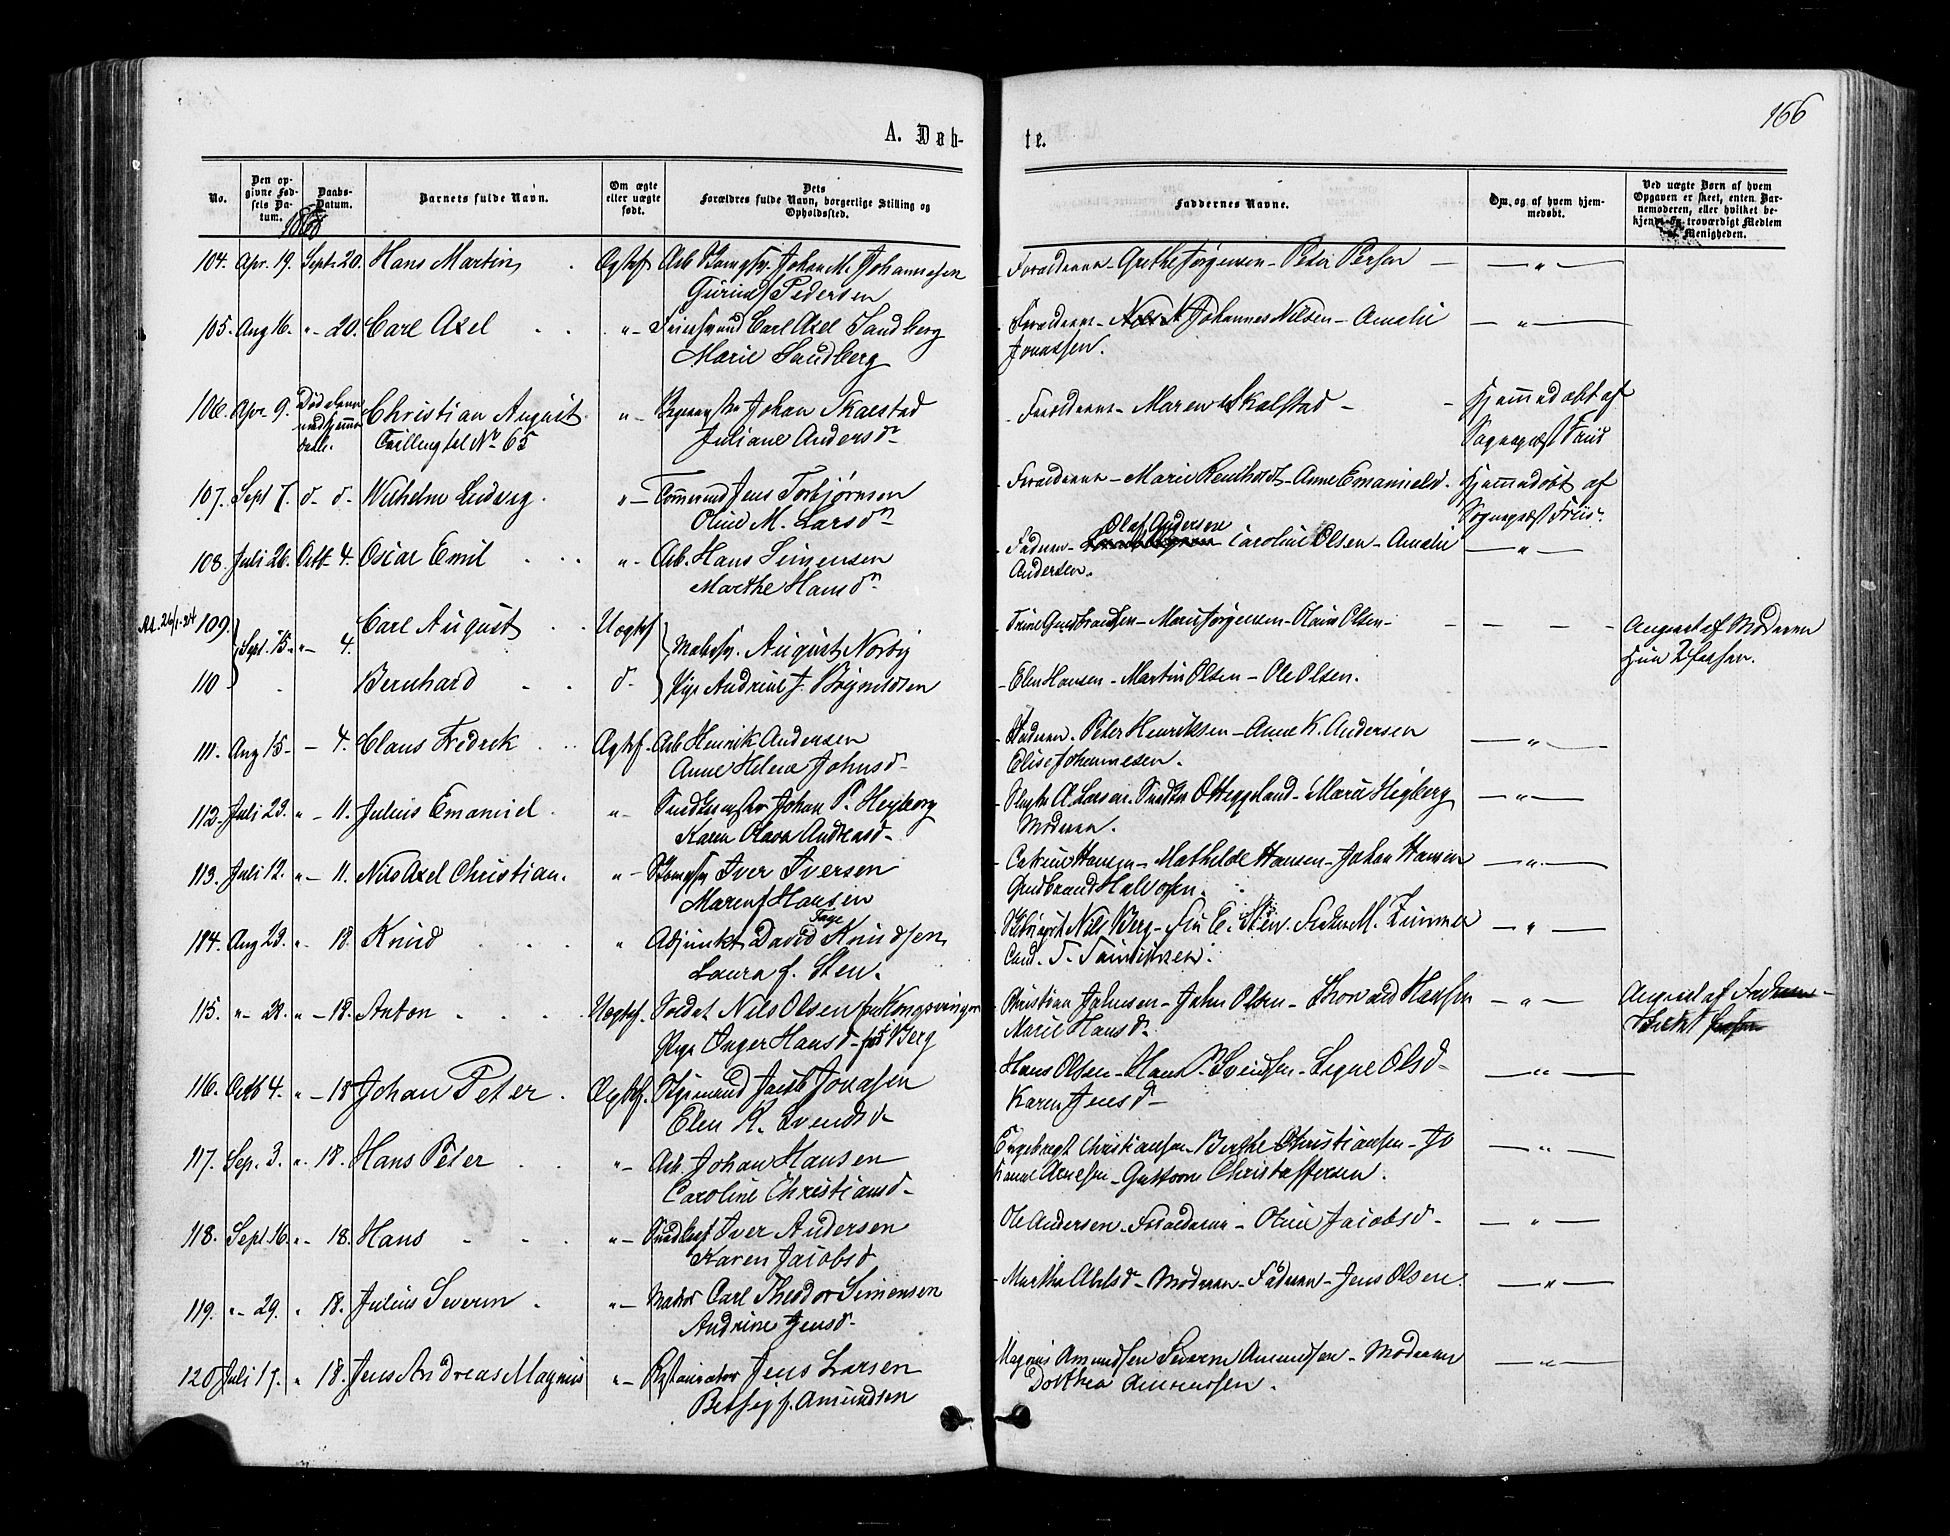 166
A. Døb-
te.
No.
Den op-
givne Fød-
sels Da-
tum.
Daabs-
Datum.
Barnets fulde Navn.
Om ægte
eller uægte
født.
Dets
Forældres fulde Navn, borgerlige Stilling og
Opholdssted.
Faddernes Navne.
Om, og af hvem hjem-
medøbt.
Ved uægte Børn af hvem
Opgaven er skeet, enten Bar-
nemoderen, eller hvilket be-
kjendt og troværdigt Medlem
af Menigheden.
1868
104. Apr. 19. Sept. 20. Hans Martin Ægtef Arb Johan M. Johannesen
Pedersen
Forældrene - Grethe Jørgensen - Peter Person — — „ —
105. Aug 16. „ - 20. Carl Axel „ - Carl Axel Sandberg
Marie Sandberg
Forældrene - Johannes Nilsen - Amalie — „ —
Jonassen.
106. Apr. 9. Christian August „ - Johan Skalstad
Juliane Andersd.
No 65
Forældrene - Maren Skalstad - Hjemmedøbt af
Sognepræst Friis
107. Sept 7. d- d- Wilhelm Ludvig. „ - Jens Torbjørnsen
Oline M. Larsd.
Forældrene - Marie - Anne Emanuelsd. Hjemmedøbt af
Sognepræst Friis.
108. Juli 26. Octb. 4. Oscar Emil „ - Arb. Hans Simensen
Marthe Hansd.
Olaf Andersen
Faderen - Caroline Olsen - Amalie — „ —
Andersen.
109. Sept. 15 „ - 4. Carl August Uægtef August Norbig
Trine Gudbrandsen - Marie Jørgensen - Olaus Olsen - Angivet af Moderen
Hun 2
110 Bernhard d- Pige Andrine J.
Elen Hansen - Martin Olsen - Ole Olsen.
111. Aug 15 - - 4. Claus Fredrik Ægtef. Arb Henrik Andersen
Anne Helene Johnsd-
Faderen. Peter Henriksen - Anne K. Andersen — „ —
Elise Johannesen.
112. Juli 23. „ - 11. Julius Emanuel. „ - Johan P. Heyberg
Karen Olava Andreasd-
A. Larsen. O Heggeland - Marie Heyberg — „ —
Moderen.
113. Juli 12. „ - 11. Nils Axel Christian. „ - Iver Iversen
Maren f Hansen
Hansen - Mathilde Hansen - Johan Hansen — „ —
Gudbrand Halvorsen.
114. Aug 23. „ 18. Knud „ Adjunkt David Faye Knudsen
Laura f. Sten.
Nils Berg - E. Sten. M. Zimmer — „ —
Cand. T.
115. „ - 22. „ - 18. Anton Uægtef. Soldat Nils Olsen fra Kongsvinger
Pige Inger Hansd - Berg
Christian Johnsen - John Olsen - Hansen — „ — Angivet af
Marie Hansd-
116. Octb 4. „ - 18 Johan Peter. Ægtef. Jacob Jonasen
Elen K. Svendsd-
Hans Olsen - Hans P. Svendsen - Signe Olsd- — „ —
Karen Jensd-
117. Sep. 3. „ 18. Hans Peter „ - Arb. Johan Hansen
Caroline Christiansd-
Engebregt Christiansen - Berthe Christiansen - Jo — „ —
Christoffersen.
118. Sept 16. „ - 18. Hans „ - Iver Andersen
Karen Jacobsd
Ole Andersen - Forældrene - Oline Jacobsd- — „ —
119. „ - 29. „ 18. Julius Severin „ - Matros Carl Theodor Simensen
Andrine Jensd-
Marthe Abelsd - Moderen - Faderen - Jens Olsen. — „ —
120 Juli 17. „ 18. Jens Andreas Magnus „ - Restauratør Jens Larsen
Betsy f. Amundsen
Magnus Amundsen Severin Amundsen - Moderen — „ —
Dorthea Amundsen.